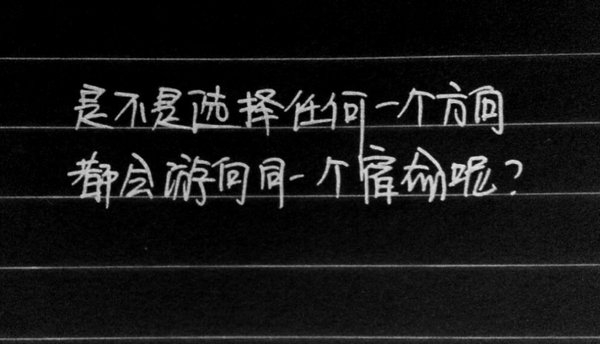 是不是选择任何一个方向
都会游向同一个宿命呢？